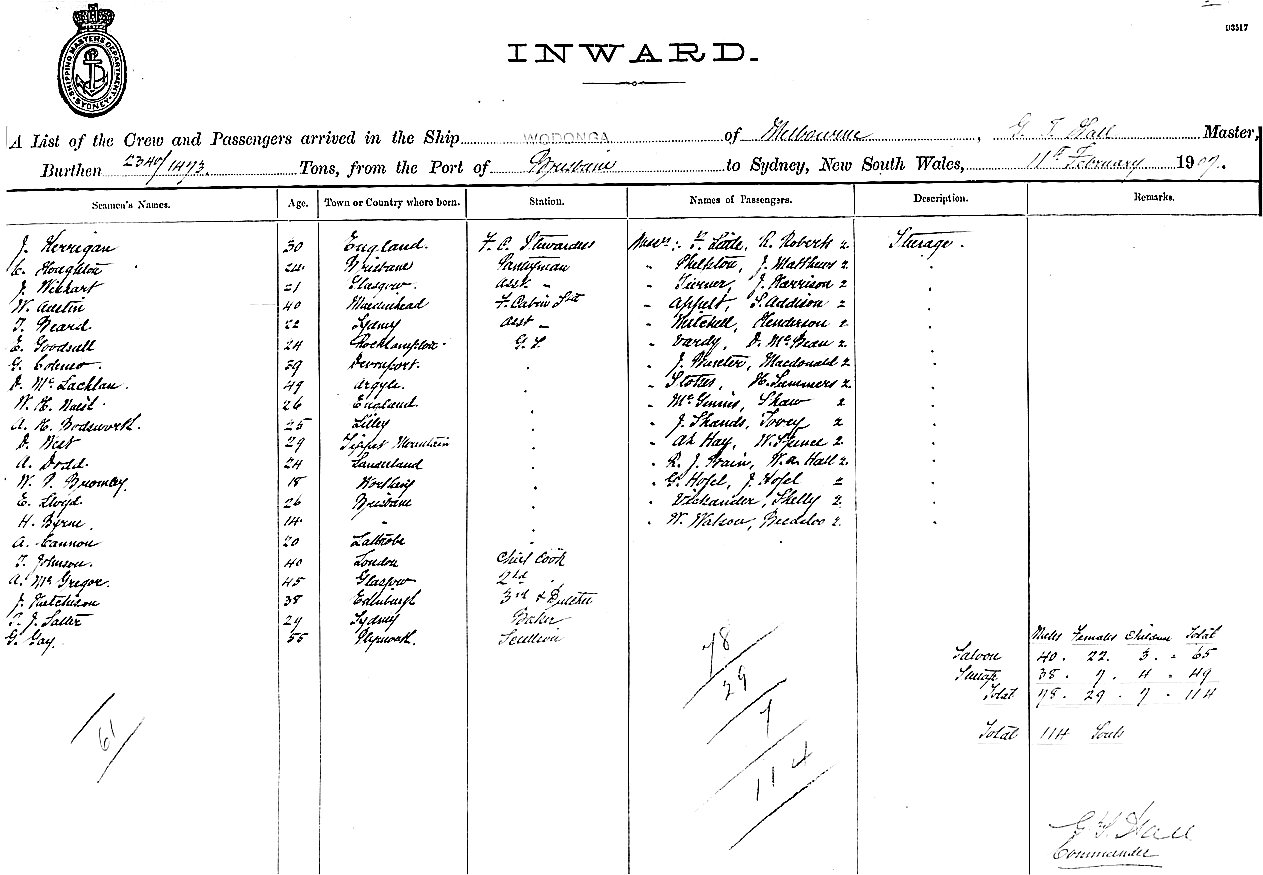 03517
SHIPPING MASTERS DEPARTMENT SYDNEY
INWARD.
A List of the Crew and Passengers arrived in the Ship WODONGA of Melbourne, G. T. Hall Master,
Burthen 2340/1473. Tons, from the Port of Brisbane to Sydney, New South Wales, 11th February 1907.
Seamen's Names. Age. Town or Country where born. Station. Names of Passengers. Description. Remarks.
J. Kerrigan 30 England. F. C. Stewardess Messrs: F. Little, R. Roberts 2 Steerage.
C. Houghton 24 Brisbane Pantryman " J. Matthews 2
J. 21 Glasgow. Asst " " Turner, J. Harrison 2
W. Austin 40 Maidenhead F. Cabin " S. Addison 2
T. Beard 22 Sydney Asst " " Mitchell, Henderson 2
E. Goodsall 24 Rockhampton. G. S. " Vardy, D. McBean 2
G. 39 Devonport. " J. Macdonald 2
D. McLachlan. 49 Argyle. " H. Summers 2
W. H. 26 England " McGinnis, Shaw 2
A. H. Bodsworth. 25 Lilley " J. Shands, Tovey 2
D. West 29 Mountain " Ah Hay, W. Spence 2
A. Dodd. 24 Sunderland " R. J. W. A. Hall 2
W. P. Bromley. 18 Worthing " G. Hofel, J. Hofel 2
E. Lloyd. 26 Brisbane " Shelly 2
H. Byrne. 14 " " W. Watson, 2
A. Cannon 20 Latrobe
T. Johnson. 40 London Chief Cook
A. McGregor. 45 Glasgow 2nd "
J. Hutchison 38 Edinburgh 3rd & Butcher
T. J. Salter 29 Sydney Baker
G. Gay. 55 Plymouth. Scullion
Males Females Children Total
Saloon 40. 22. 3. - 65
Steerage 38. 7. 4. - 49
Total 78. 29. 7. 114
Total 114 Souls
61
78
29
7
114
G. T. Hall
Commander